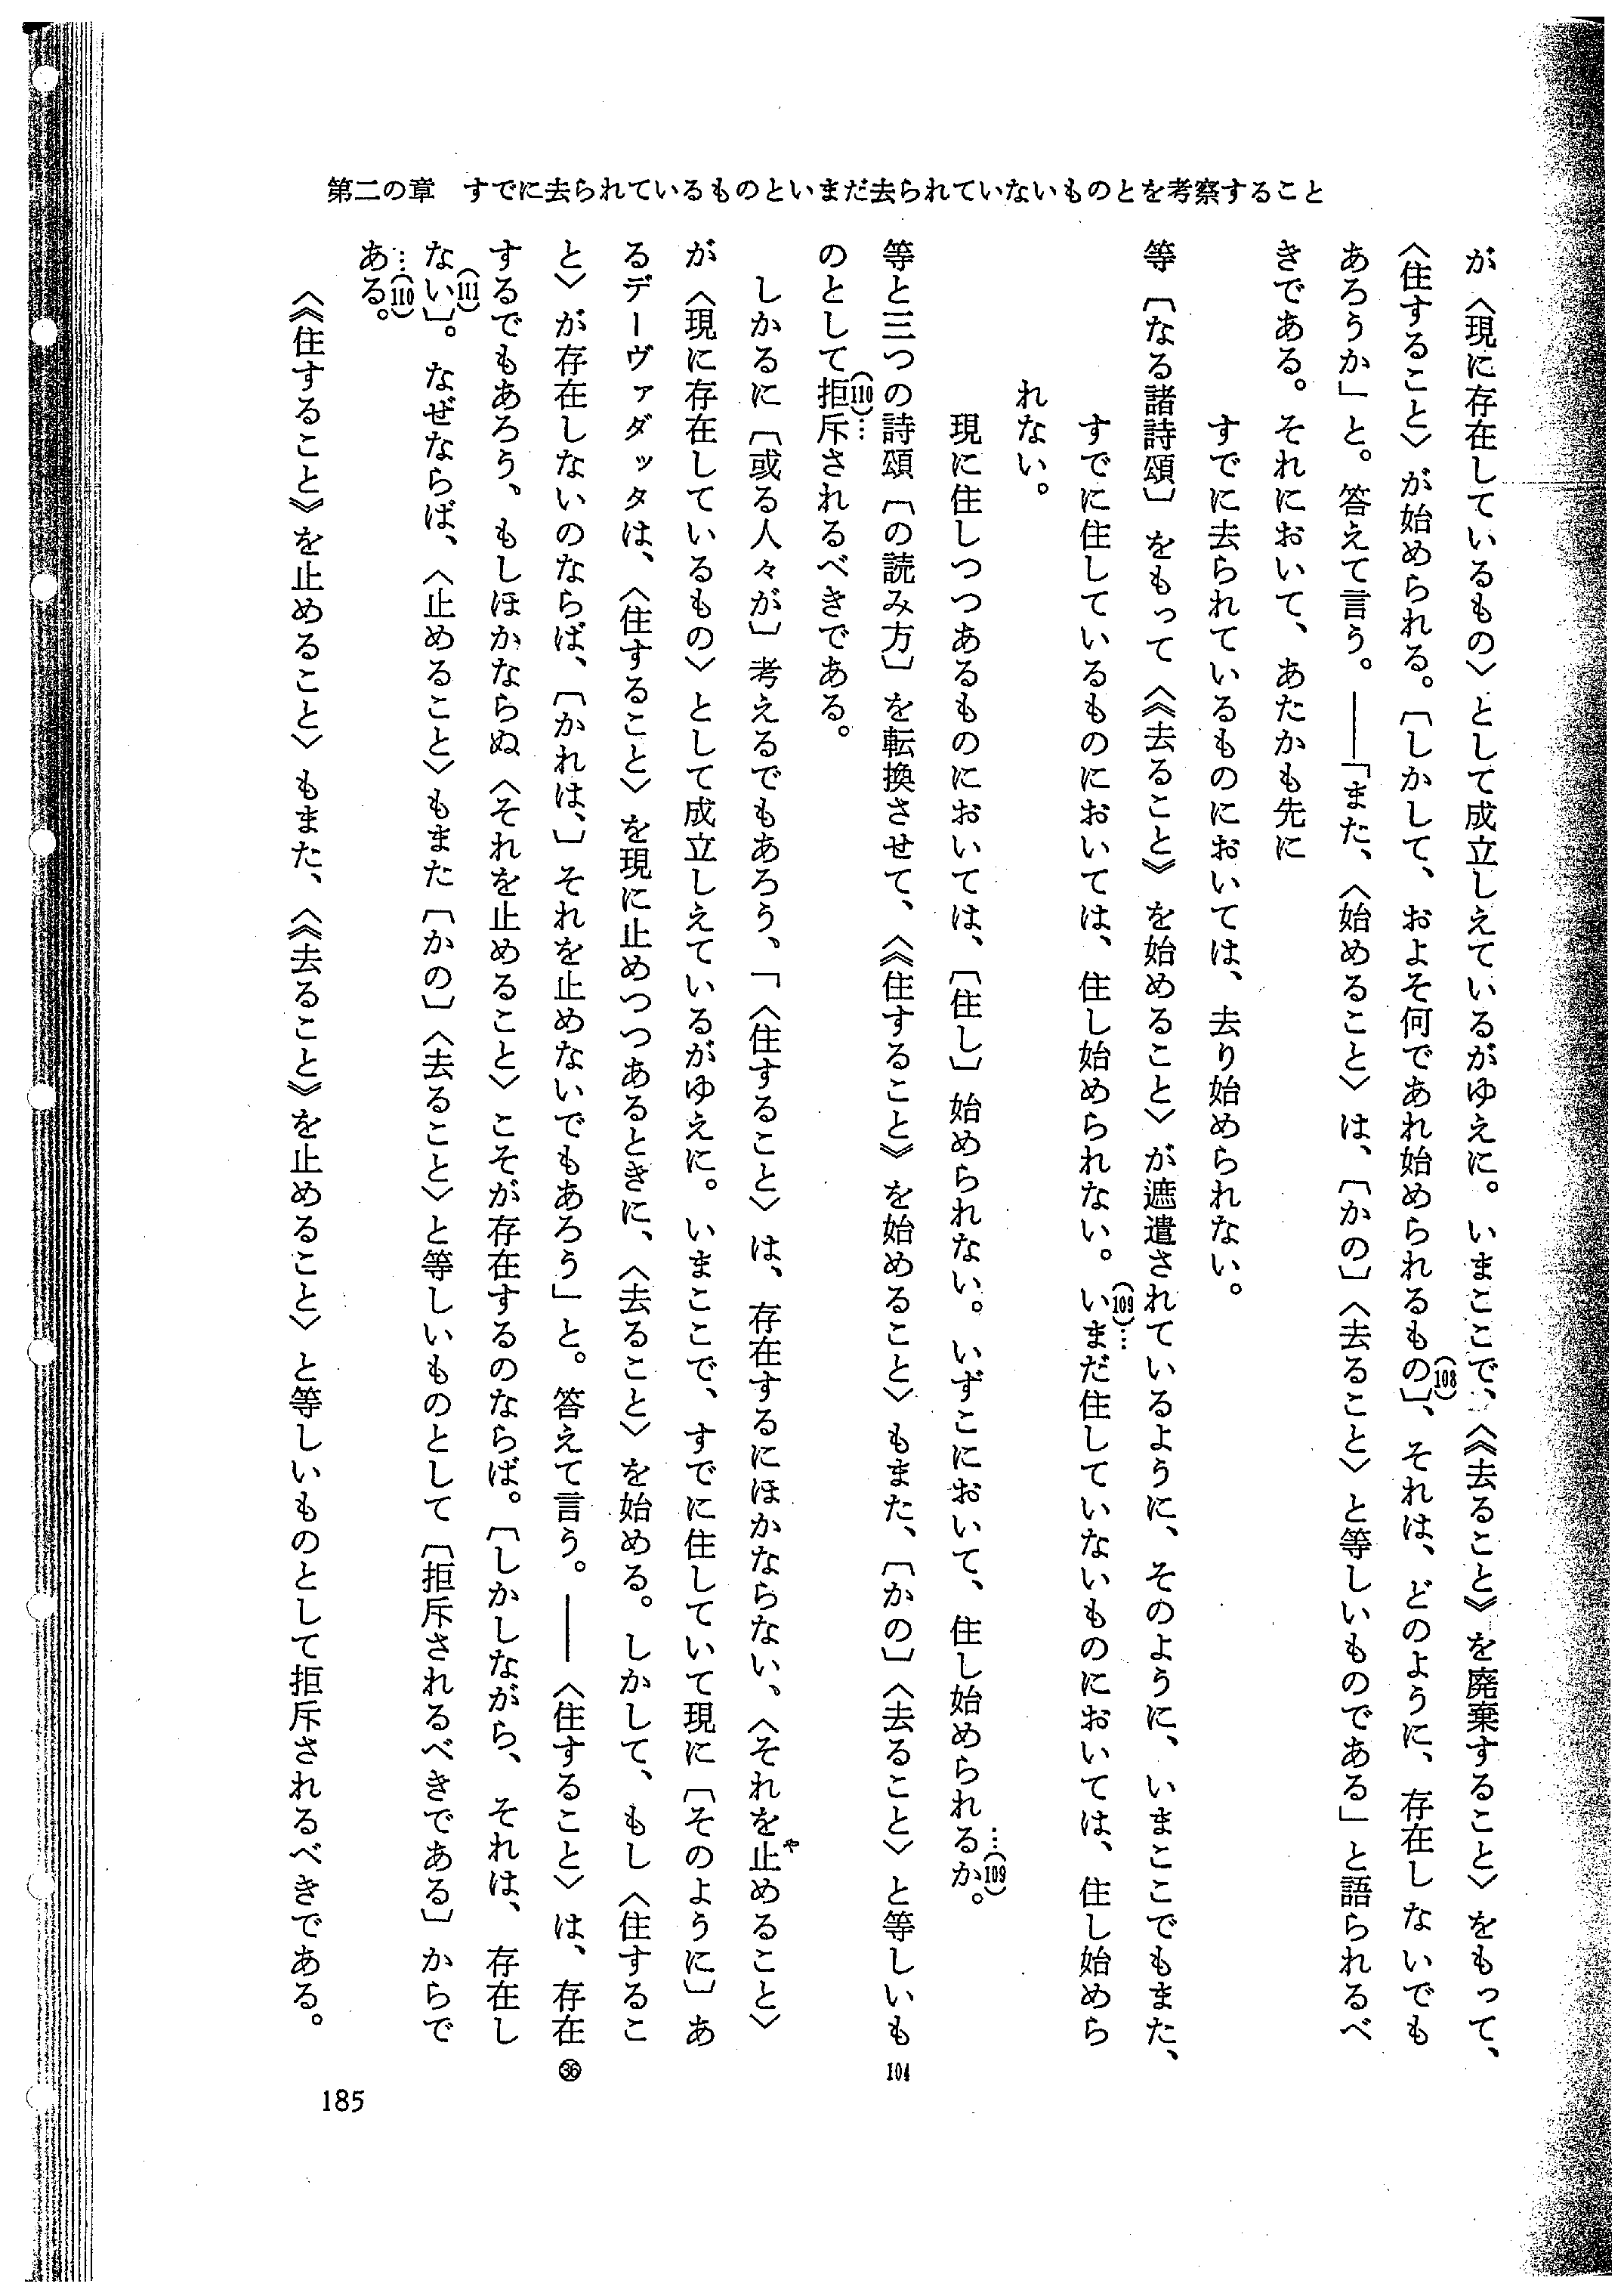 第二の章　すでに去られているものといまだ去られていないものとを考察すること
が〈現に存在しているもの〉として成立しえているがゆえに。いまここで、〈《去ること》を廃棄すること〉をもって、
〈住すること〉が始められる。〔しかして、およそ何であれ始められるもの〕(108)、それは、どのように、存在しないでも
あろうか」と。答えて言う。――「また、〈始めること〉は、〔かの〕〈去ること〉と等しいものである」と語られるべ
きである。それにおいて、あたかも先に
すでに去られているものにおいては、去り始められない。
等〔なる諸詩頌〕をもって〈《去ること》を始めること〉が遮遣されているように、そのように、いまここでもまた、
すでに住しているものにおいては、住し始められない。(109)…いまだ住していないものにおいては、住し始めら
れない。
現に住しつつあるものにおいては、〔住し〕始められない。いずこにおいて、住し始められるか。…(109)
等と三つの詩頌〔の読み方〕を転換させて、〈《住すること》を始めること〉もまた、〔かの〕〈去ること〉と等しいも 104
のとして(110)…拒斥されるべきである。
しかるに〔或る人々が〕考えるでもあろう、「〈住すること〉は、存在するにほかならない、〈それを止(や)めること〉
が〈現に存在しているもの〉として成立しえているがゆえに。いまここで、すでに住していて現に〔そのように〕あ
るデーヴァダッタは、〈住すること〉を現に止めつつあるときに、〈去ること〉を始める。しかして、もし〈住するこ
と〉が存在しないのならば、〔かれは、〕それを止めないでもあろう」と。答えて言う。――〈住すること〉は、存在 ㊱
するでもあろう、もしほかならぬ〈それを止めること〉こそが存在するのならば。〔しかしながら、それは、存在し
ない〕(111)。なぜならば、〈止めること〉もまた〔かの〕〈去ること〉と等しいものとして〔拒斥されるべきである〕からで
ある。…(110)
〈《住すること》を止めること〉もまた、〈《去ること》を止めること〉と等しいものとして拒斥されるべきである。
185